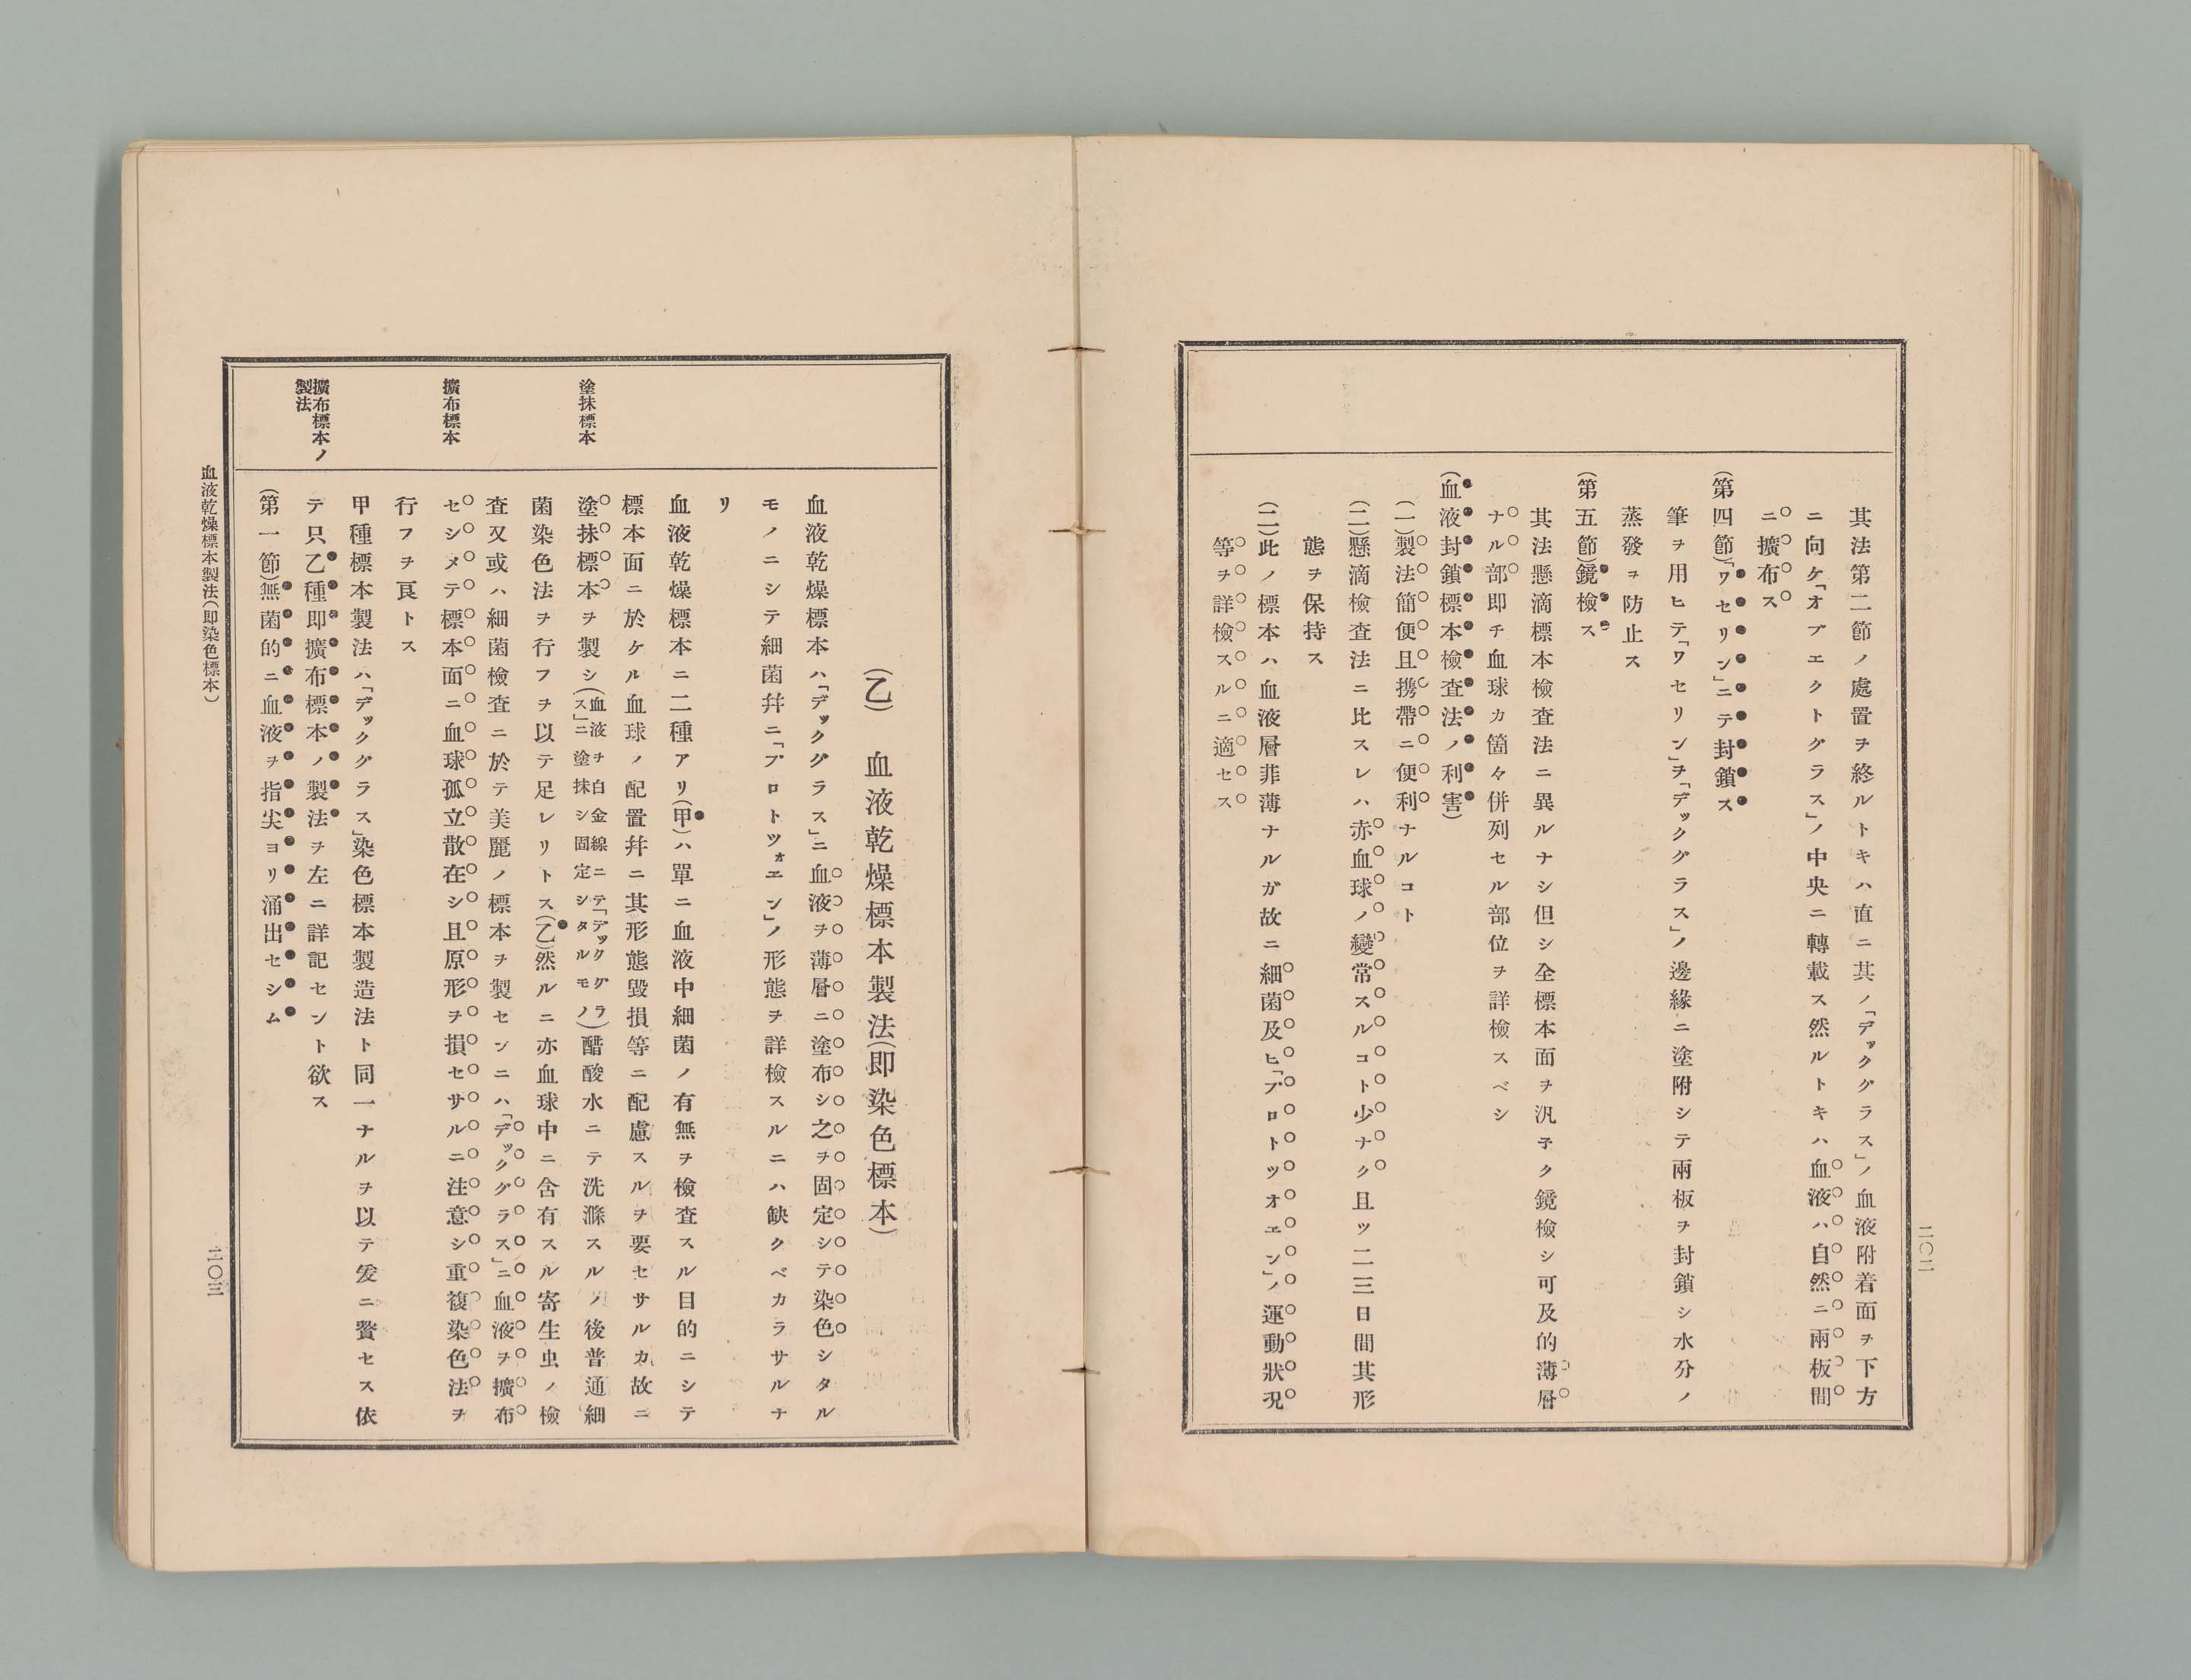 二〇二
其法第二節ノ處置ヲ終ルトキハ直ニ其ノ「デックグラス」ノ血液附着面ヲ下方
ニ向ケ「オブエクトグラス」ノ中央ニ轉載ス然ルトキハ血液ハ自然ニ兩板間
ニ擴布ス
(第四節)「ワセリン」ニテ封鎖ス
筆ヲ用ヒテ「ワセリン」ヲ「デックグラス」ノ邊緣ニ塗附シテ兩板ヲ封鎖シ水分ノ
蒸發ヲ防止ス
(第五節)鏡檢ス
其法懸滴標本檢査法ニ異ルナシ但シ全標本面ヲ汎子ク鏡檢シ可及的薄層
ナル部即チ血球カ箇々併列セル部位ヲ詳檢スベシ
(血液封鎖標本檢査法ノ利害)
(一)製法簡便且携帶ニ便利ナルコト
(二)懸滴檢査法ニ比スレハ赤血球ノ變常スルコト少ナク且ッ二三日間其形
態ヲ保持ス
(二)此ノ標本ハ血液層菲薄ナルガ故ニ細菌及ヒ「プロトツオエン」ノ運動狀況
等ヲ詳檢スルニ適セス
(乙) 血液乾燥標本製法(即染色標本)
血液乾燥標本ハ「デックグラス」ニ血液ヲ薄層ニ塗布シ之ヲ固定シテ染色シタル
モノニシテ細菌幷ニ「プロトツォエン」ノ形態ヲ詳檢スルニハ缺クベカラサルナ
リ
血液乾燥標本ニ二種アリ(甲)ハ單ニ血液中細菌ノ有無ヲ檢査スル目的ニシテ
標本面ニ於ケル血球ノ配置幷ニ其形態毀損等ニ配慮スルヲ要セサルカ故ニ
塗抹標本
塗抹標本ヲ製シ(血液ヲ白金線ニテ「デックグラス」ニ塗抹シ固定シタルモノ)醋酸水ニテ洗滌スルノ後普通細
菌染色法ヲ行フヲ以テ足レリトス(乙)然ルニ亦血球中ニ含有スル寄生虫ノ檢
査又或ハ細菌檢査ニ於テ美麗ノ標本ヲ製センニハ「デックグラス」ニ血液ヲ擴布
擴布標本
セシメテ標本面ニ血球孤立散在シ且原形ヲ損セサルニ注意シ重複染色法ヲ
行フヲ良トス
甲種標本製法ハ「デックグラス」染色標本製造法ト同一ナルヲ以テ爰ニ贅セス依
擴布標本ノ
製法
テ只乙種即擴布標本ノ製法ヲ左ニ詳記セント欲ス
(第一節)無菌的ニ血液ヲ指尖ヨリ涌出セシム
血液乾燥標本製法(即染色標本)
二〇三